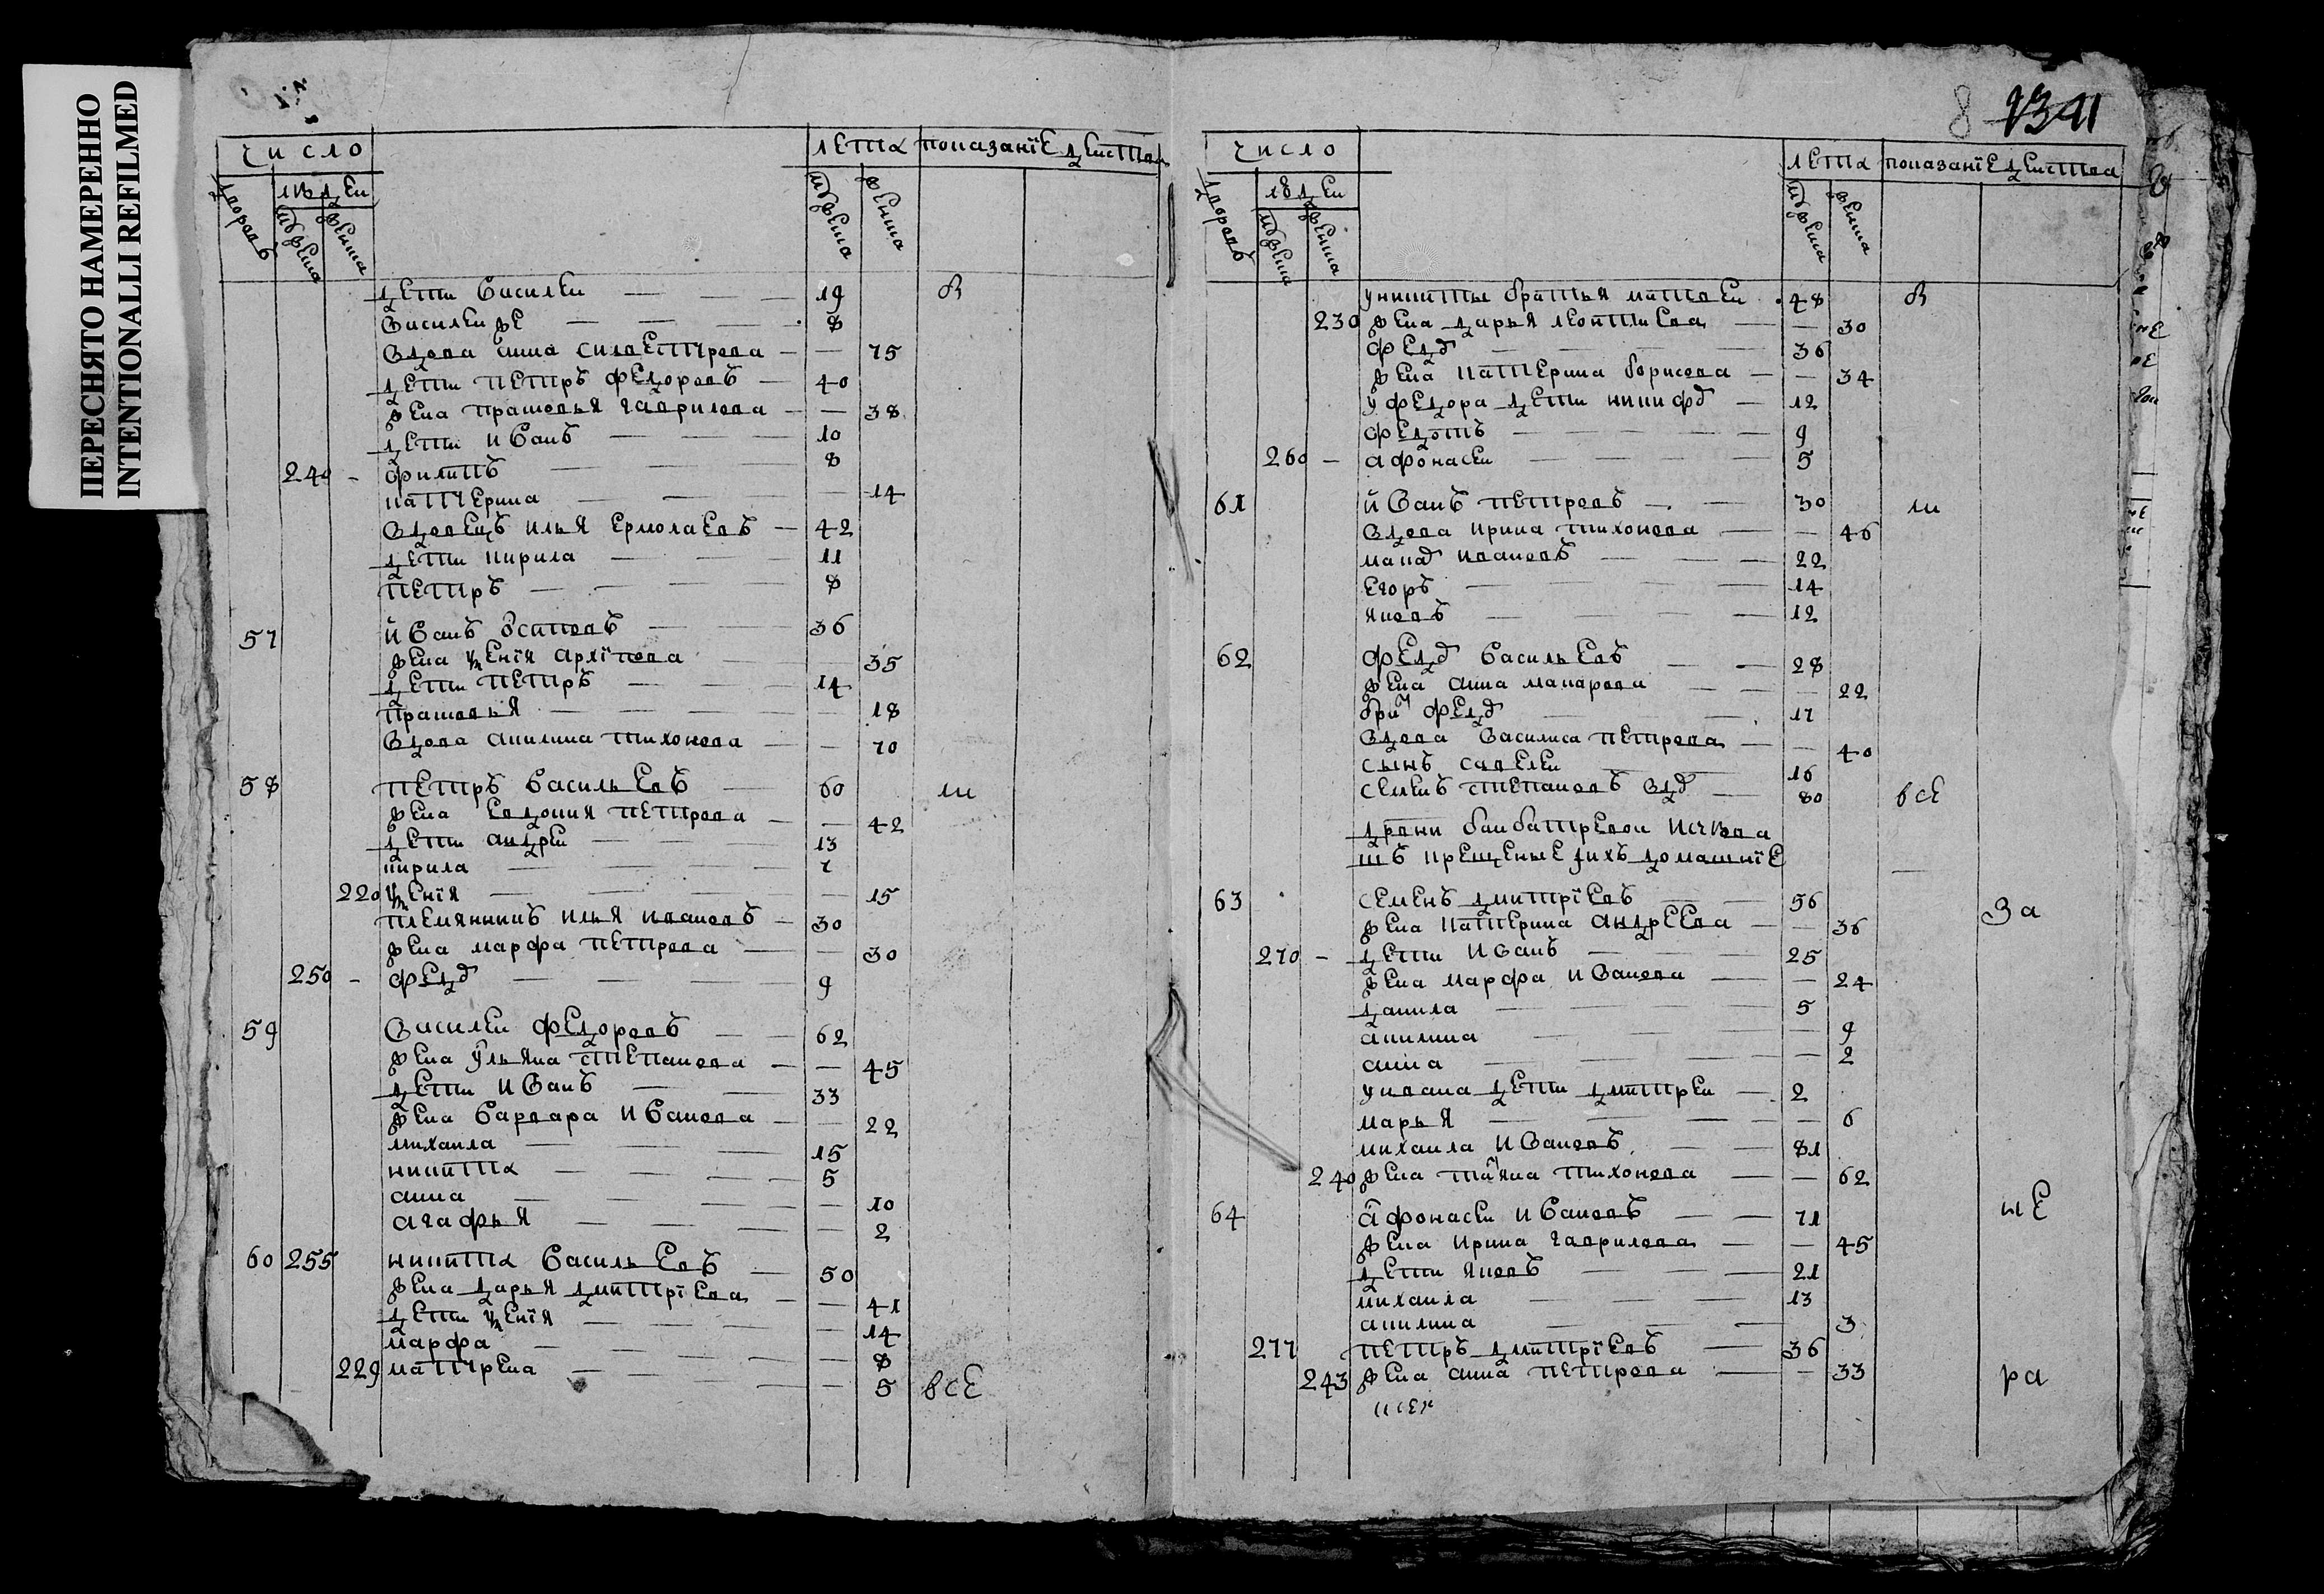 ПЕРЕСНЯТО НАМЕРЕННО
INTENTIONALLI REFILMED
число
лета показанїе действа
дворовъ
людей
мужеска
женска
мужеска
женска
дети Василеи — 19 в
Василеи же — 8
Вдова анна силвестрова — 75
дети петръ федоровъ — 40
жена прасковья гаврилова — 38
дети иванъ — 10
240 - филипъ — 8
катерина — 14
Вдовецъ илья ермолаевъ — 42
дети кирила — 11
петръ — 8
57 иванъ осиповъ — 36
жена ксенїя архїпова — 35
дети петръ — 14
прасковья — 18
Вдова акилина тихонова — 70
58 петръ васильевъ — 60 ш
жена евдокия петрова — 42
дети андреи — 13
кирила — 7
220 ксенїя — 15
племянникъ илья ивановъ — 30
жена марфа петрова — 30
250 - федо — 9
59 Василеи федоровъ — 62
жена ульяна степанова — 45
дети иванъ — 33
жена варвара иванова — 22
михаила — 15
никита — 5
анна — 10
агафья — 2
60 255 никита васильевъ — 50
жена дарья дмитрїева — 41
дети ксенїя — 14
марфа — 8
229 матрена — 5 все
8 1341
число
лета показанїе действа
дворовъ
людей
мужеска
женска
мужеска
женска
у никиты братья матвеи 48 в
230 жена дарья леонтиева — 30
федо — 36
жена катерина борисова — 34
у федора дети никифо — 12
федотъ — 9
260 - афонасеи — 5
61 иванъ петровъ — 30 ш
Вдова ирина тихонова — 46
мака ивановъ — 22
егоръ — 14
яковъ — 12
62 федо васильевъ — 28
жена анна макарова — 22
бра федо — 17
Вдова василиса петрова — 40
сынъ савелеи — 16
семенъ степановъ вдо — 80 все
63 семенъ дмитрїевъ — 56 За
жена катерина андреева — 36
270 - дети иванъ — 25
жена марфа иванова — 24
данила — 5
акилина — 9
анна — 2
у ивана дети дмитреи — 2
марья — 6
михаила ивановъ — 81
240 жена татяна тихонова — 62
64 афонасеи ивановъ — 71 не
жена ирина гаврилова — 45
дети яковъ — 21
михаила — 13
акилина — 3
277 петръ дмитрїевъ — 36
243 жена анна петрова — 33 ра